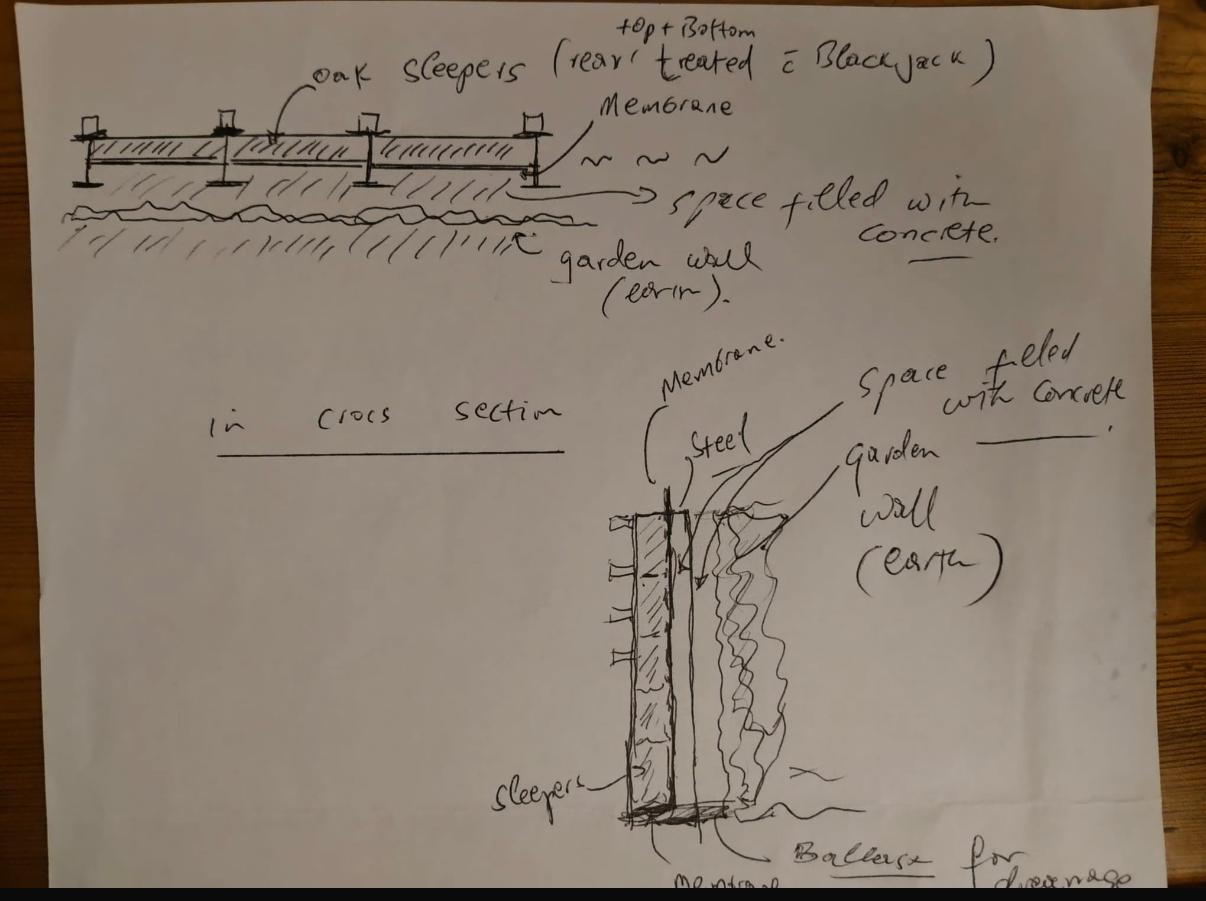 top + Bottom
oak sleepers (rear treated c̄ Blackjack)
Membrane
space filled with
concrete.
garden wall
Membrane.
Space filled
with concrete
in crocs section
Steel
garden
wall
(earth)
sleepers
Ballast for
drainage
Membrane